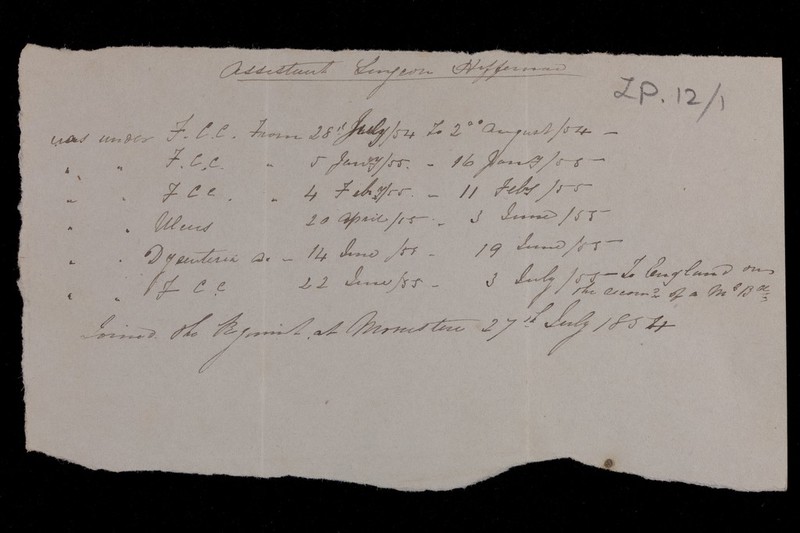 Assistant Surgeon Heffernan
LP. 12/1
was under F.C.C. From 28th July/54 to 2nd August/54 —
" " F.C.C. " 5 Jany/55 - 16 Jany/55 —
" " F C C. " 4 Feby/55 - 11 Feby/55 —
" " Ulcus 20 April/55 - 3 June/55 —
" " Dysenteria Ac - 14 June/55 - 19 June/55 —
" " F C C 22 June/55 - 3 July/55 — To England on
the recomn of a Md Bd
Joined the Regimnt at Monastere 27th July 1854